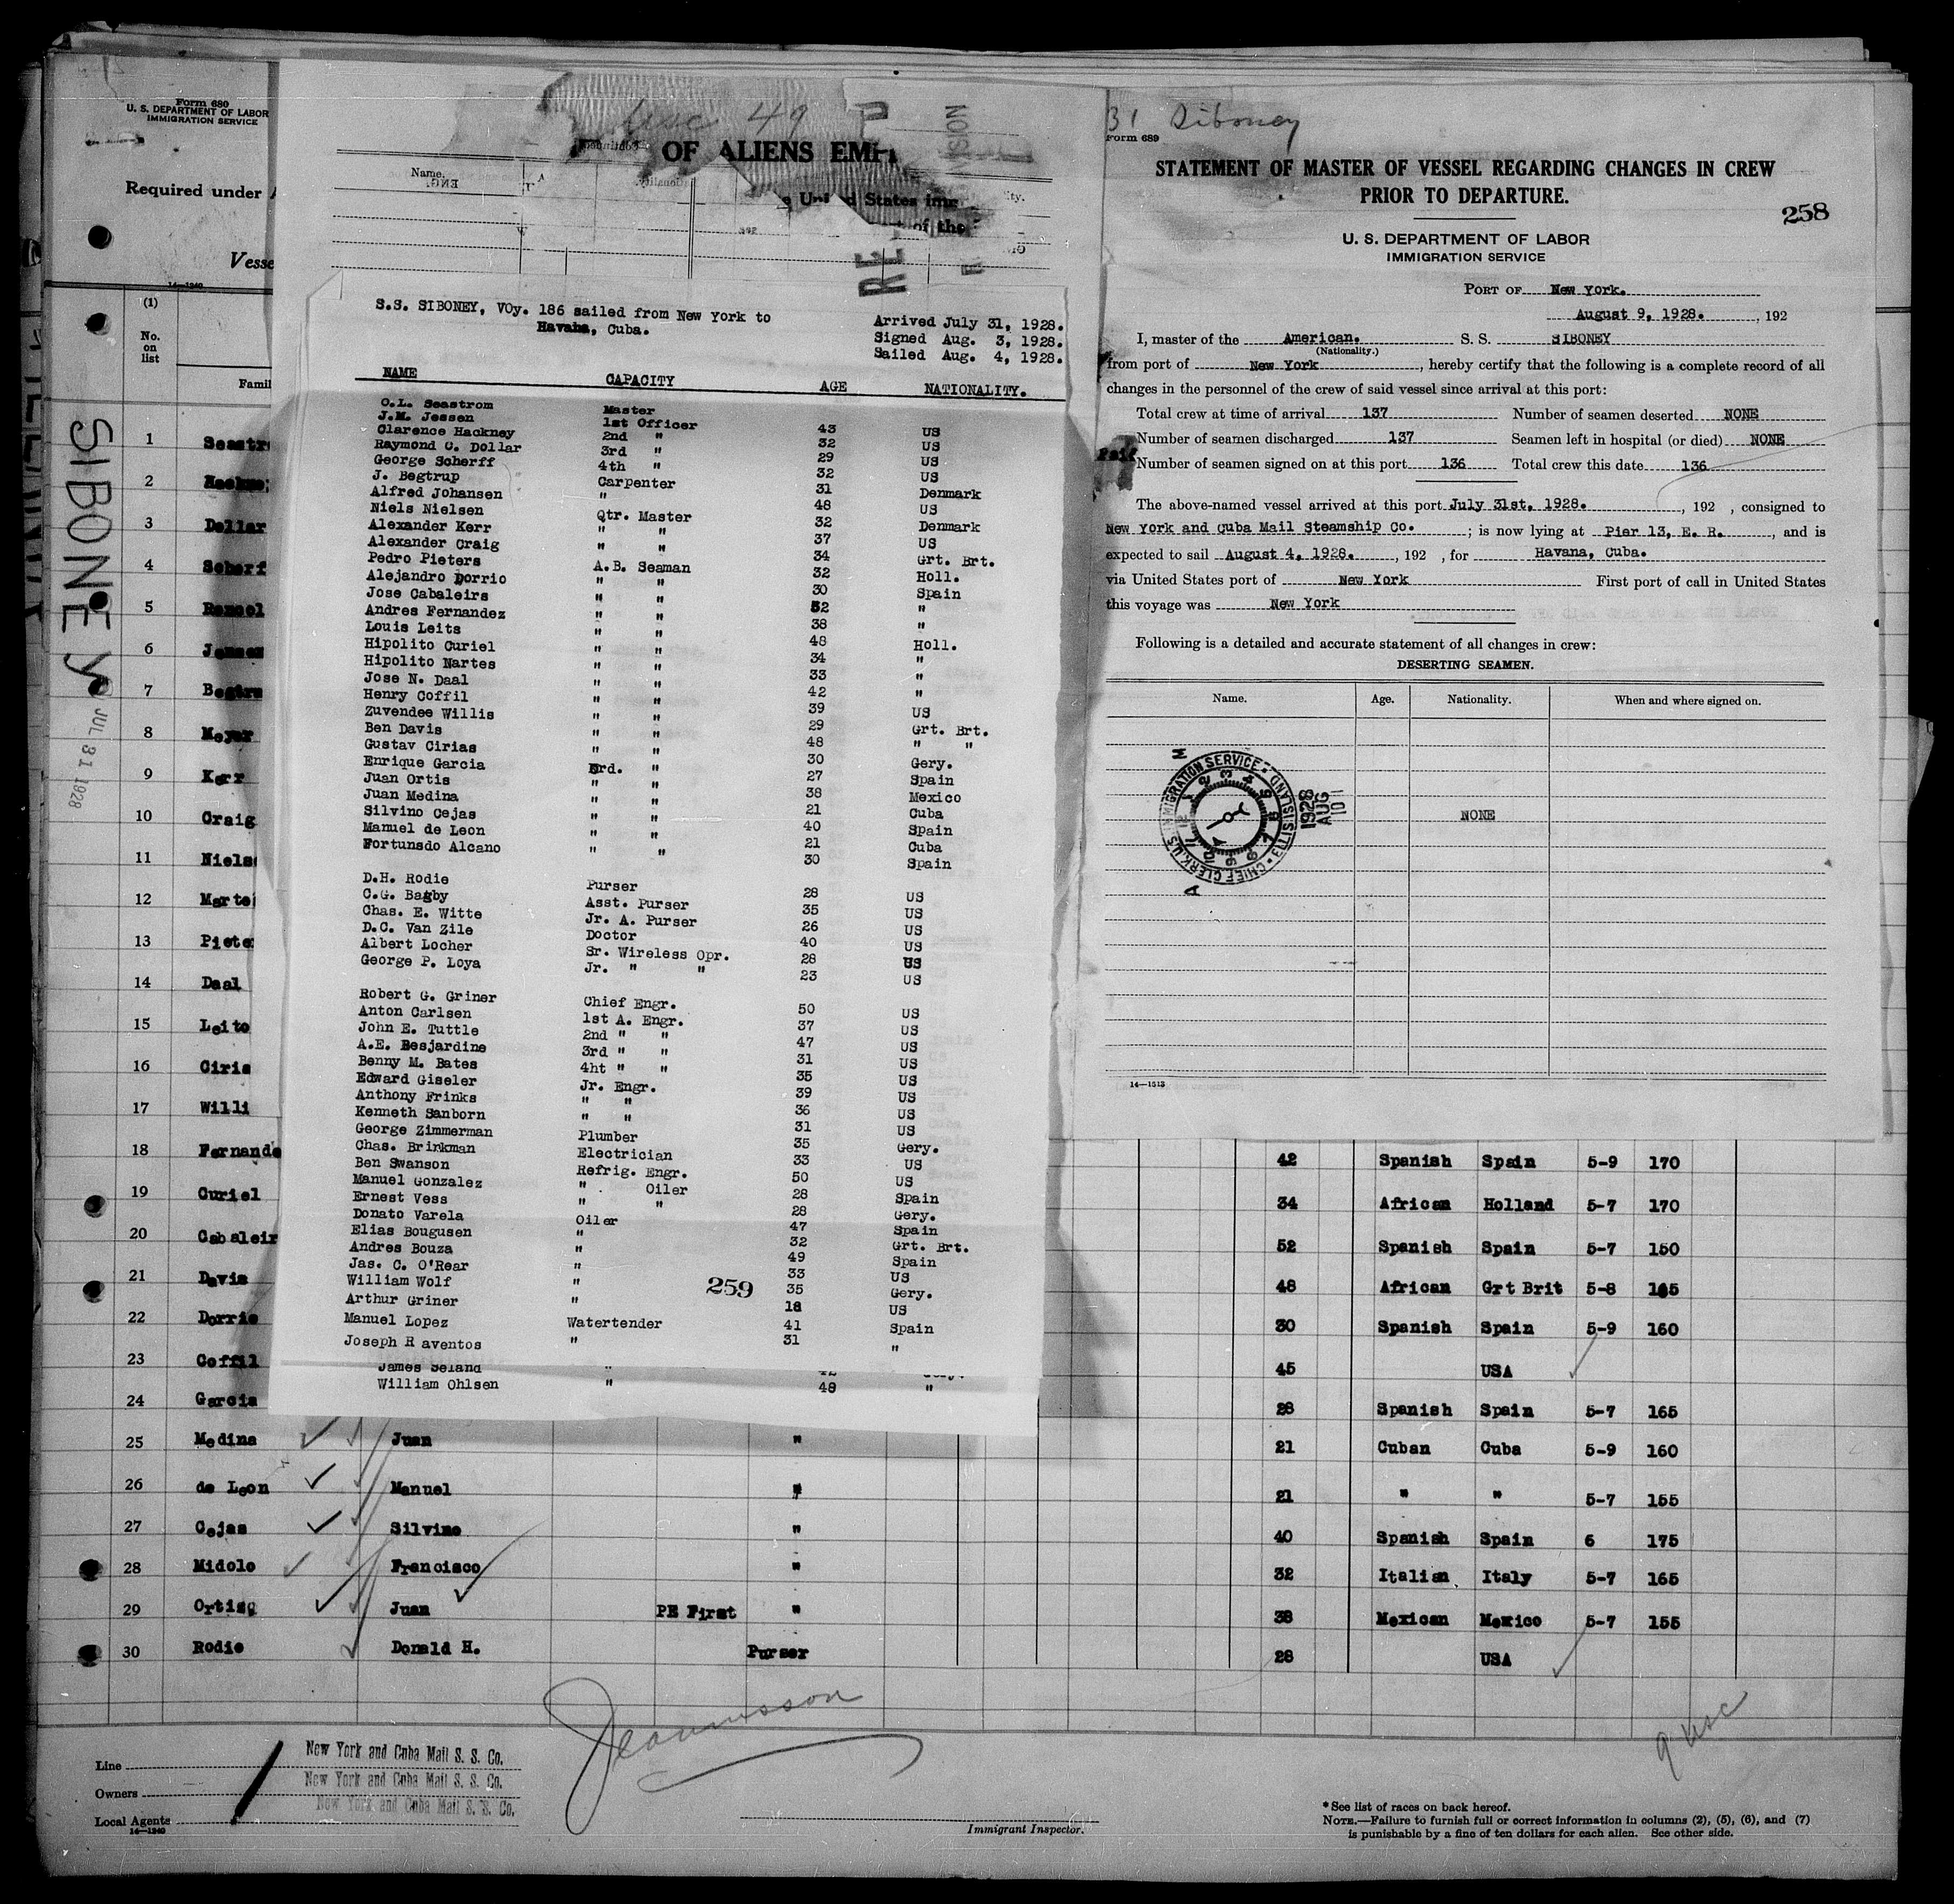 Form 680
U. S. DEPARTMENT OF LABOR
IMMIGRATION SERVICE
Required under
Vesse
14—1240
(1)
No.
on
list
Famil
SIBONEY
JUL 31 1928
1 Seastr
2
3 Dollar
4 Scherf
5
6 Jensen
7 Begtru
8 Meyer
9 Kerr
10 Craig
11 Niels
12 Marte
13 Piete
14 Daal
15 Leito
16 Ciris
17 Willi
18 Fernande
19 Curiel
20 Cabaleir
21 Davis
22 Dorrio
23 Coffil
24 Garcia
25 Medina Juan "
26 de Leon Manuel "
27 Cejas Silvino "
28 Midolo Francisco "
29 Ortisg Juan PE First "
30 Rodie Donald H. Purser
49
OF ALIENS EMP
Name.
United States imm
of the
S.S. SIBONEY, VOy. 186 sailed from New York to
Havana, Cuba.
Arrived July 31, 1928.
Signed Aug. 3, 1928.
Sailed Aug. 4, 1928.
NAME CAPACITY AGE NATIONALITY.
O.L. Seastrom Master 43 US
J.M. Jessen 1st Officer 32 US
Clarence Hackney 2nd " 29 US
Raymond C. Dollar 3rd " 32 US
George Scherff 4th " 31 Denmark
J. Begtrup Carpenter 48 US
Alfred Johansen " 32 Denmark
Niels Nielsen Qtr. Master 37 US
Alexander Kerr " " 34 Grt. Brt.
Alexander Craig " " 32 Holl.
Pedro Pieters A.B. Seaman 30 Spain
Alejandro Dorrio " " 52 "
Jose Cabaleirs " " 38 "
Andres Fernandez " " 48 Holl.
Louis Leits " " 34 "
Hipolito Curiel " " 33 "
Hipolito Nartes " " 42 "
Jose N. Daal " " 39 US
Henry Coffil " " 29 Grt. Brt.
Zuvendee Willis " " 48 " "
Ben Davis " " 30 Gery.
Gustav Cirias " " 27 Spain
Enrique Garcia Ord. " 38 Mexico
Juan Ortis " " 21 Cuba
Juan Medina " " 40 Spain
Silvino Cejas " " 21 Cuba
Manuel de Leon " " 30 Spain
Fortunsdo Alcano " "
D.H. Rodie Purser 28 US
C.G. Bagby Asst. Purser 35 US
Chas. E. Witte Jr. A. Purser 26 US
D.C. Van Zile Doctor 40 US
Albert Locher Sr. Wireless Opr. 28 US
George P. Loya Jr. " " 23 US
Robert G. Griner Chief Engr. 50 US
Anton Carlsen 1st A. Engr. 37 US
John E. Tuttle 2nd " " 47 US
A.E. Besjardine 3rd " " 31 US
Benny M. Bates 4ht " " 35 US
Edward Giseler Jr. Engr. 39 US
Anthony Frinks " " 36 US
Kenneth Sanborn " " 31 US
George Zimmerman Plumber 35 Gery.
Chas. Brinkman Electrician 33 US
Ben Swanson Refrig. Engr. 50 US
Manuel Gonzalez " Oiler 28 Spain
Ernest Vess " " 28 Gery.
Donato Varela Oiler 47 Spain
Elias Bougusen " 32 Grt. Brt.
Andres Bouza " 49 Spain
Jas. C. O'Rear " 33 US
William Wolf " 35 Gery.
Arthur Griner " 18 US
Manuel Lopez Watertender 41 Spain
Joseph R aventos " 31 "
259
James Seland " 42 Gery.
William Ohlsen " 48 "
31 Siboney
Form 689
STATEMENT OF MASTER OF VESSEL REGARDING CHANGES IN CREW
PRIOR TO DEPARTURE.
258
U. S. DEPARTMENT OF LABOR
IMMIGRATION SERVICE
PORT OF New York.
August 9, 1928. , 192
I, master of the American. S. S. SIBONEY
(Nationality.)
from port of New York , hereby certify that the following is a complete record of all
changes in the personnel of the crew of said vessel since arrival at this port:
Total crew at time of arrival 137 Number of seamen deserted NONE
Number of seamen discharged 137 Seamen left in hospital (or died) NONE
Number of seamen signed on at this port 136 Total crew this date 136
The above-named vessel arrived at this port July 31st, 1928. , 192 , consigned to
New York and Cuba Mail Steamship Co. ; is now lying at Pier 13, E. R. , and is
expected to sail August 4, 1928. , 192 , for Havana, Cuba.
via United States port of New York First port of call in United States
this voyage was New York
Following is a detailed and accurate statement of all changes in crew:
DESERTING SEAMEN.
Name. Age. Nationality. When and where signed on.
NONE
CHIEF CLERK, U.S. IMMIGRATION SERVICE · ELLIS ISLAND
1928 AUG 10
14—1513
42 Spanish Spain 5-9 170
34 African Holland 5-7 170
52 Spanish Spain 5-7 150
48 African Grt Brit 5-8 165
30 Spanish Spain 5-9 160
45 USA
28 Spanish Spain 5-7 165
21 Cuban Cuba 5-9 160
21 " " 5-7 155
40 Spanish Spain 6 175
32 Italian Italy 5-7 165
38 Mexican Mexico 5-7 155
28 USA
9 usc
Line New York and Cuba Mail S. S. Co.
Owners New York and Cuba Mail S. S. Co.
Local Agents New York and Cuba Mail S. S. Co.
14—1240
Immigrant Inspector.
* See list of races on back hereof.
NOTE.—Failure to furnish full or correct information in columns (2), (5), (6), and (7)
is punishable by a fine of ten dollars for each alien. See other side.